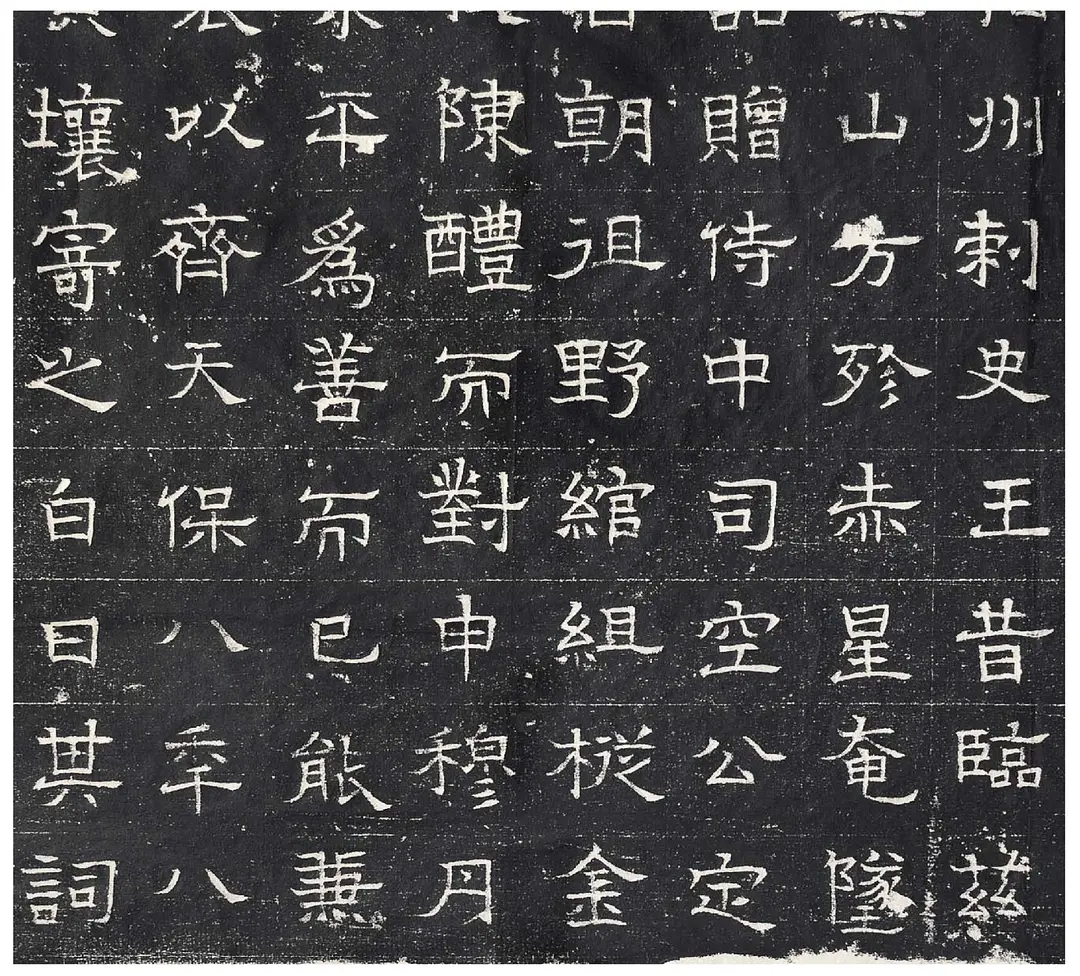 州刺史王昔臨茲
山方殄赤星奄墜
贈侍中司空公定
朝徂野綰組樅金
陳醴而對申穆丹
平為善而已能兼
以齊天保八年八
壤寄之自曰其詞